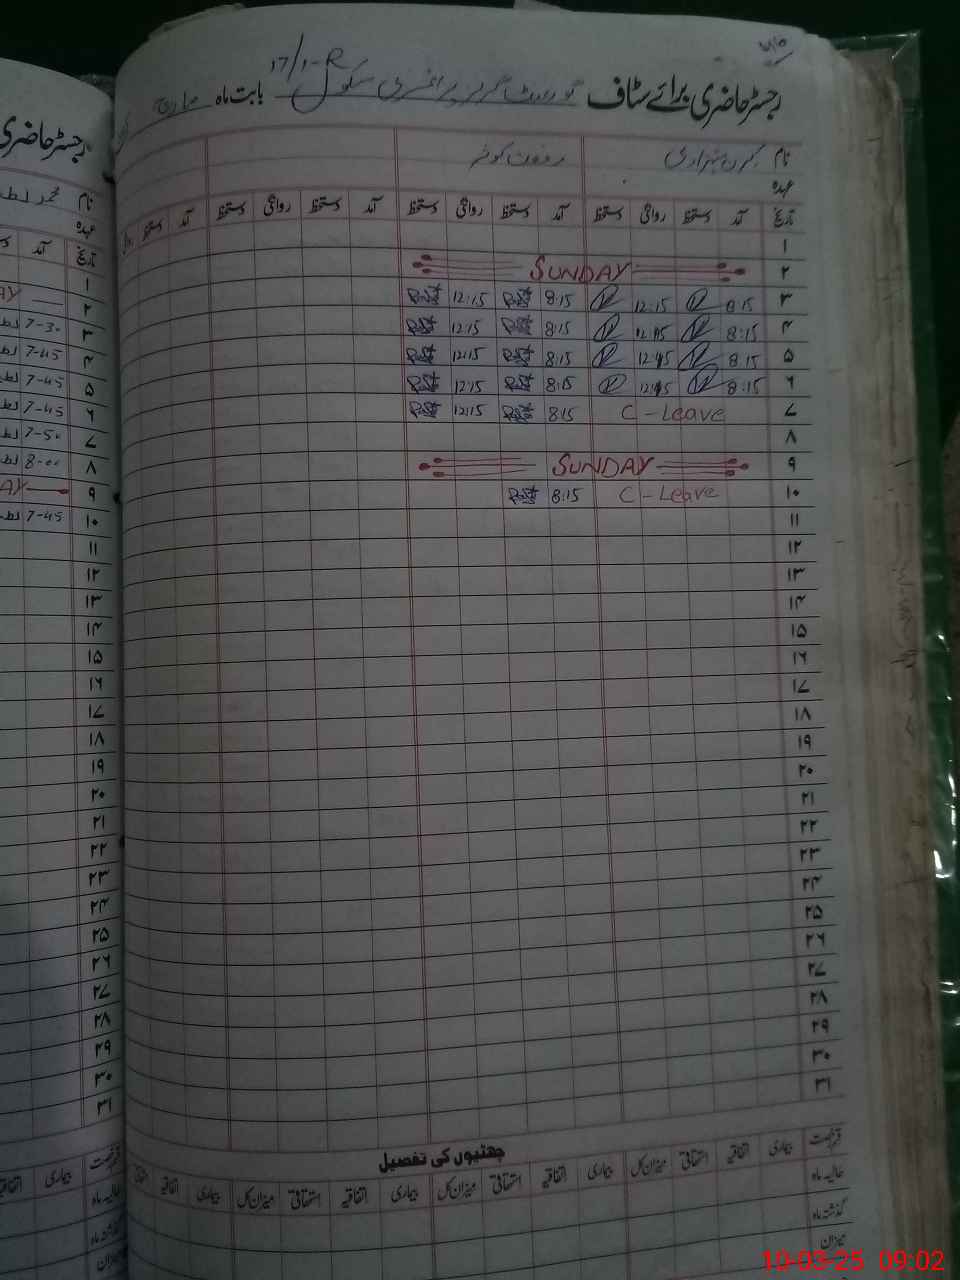 رجسٹر حاضری برائے سٹاف گورنمنٹ گرلز پرائمری سکول 17/1-R بابت ماہ مارچ
نام رفعت کوثر
عہدہ
تاریخ آمد دستخط روانگی دستخط آمد دستخط روانگی دستخط آمد دستخط روانگی دستخط آمد دستخط
۱
۲ SUNDAY
۳ 8:15 12:15 8:15 12:15
۴ 8:15 12:15 8:15 12:15
۵ 8:15 12:15 8:15 12:15
۶ 8:15 12:15 8:15 12:15
۷ C - Leave 8:15 12:15
۸
۹ SUNDAY
۱۰ C - Leave 8:15
۱۱
۱۲
۱۳
۱۴
۱۵
۱۶
۱۷
۱۸
۱۹
۲۰
۲۱
۲۲
۲۳
۲۴
۲۵
۲۶
۲۷
۲۸
۲۹
۳۰
۳۱
چھٹیوں کی تفصیل
قسم رخصت بیماری اتفاقیہ استحقاقی میزان کل بیماری اتفاقیہ استحقاقی میزان کل بیماری اتفاقیہ استحقاقی میزان کل بیماری اتفاقیہ
حالیہ ماہ
گذشتہ ماہ
میزان
رجسٹر حاضری
نام محمد
عہدہ
تاریخ آمد
۱
۲
۳ 7-30
۴ 7-45
۵ 7-45
۶ 7-45
۷ 7-50
۸ 8-00
۹
۱۰ 7-45
۱۱
۱۲
۱۳
۱۴
۱۵
۱۶
۱۷
۱۸
۱۹
۲۰
۲۱
۲۲
۲۳
۲۴
۲۵
۲۶
۲۷
۲۸
۲۹
۳۰
۳۱
رخصت بیماری اتفاقیہ
حالیہ ماہ
گذشتہ ماہ
میزان
10-03-25 09:02